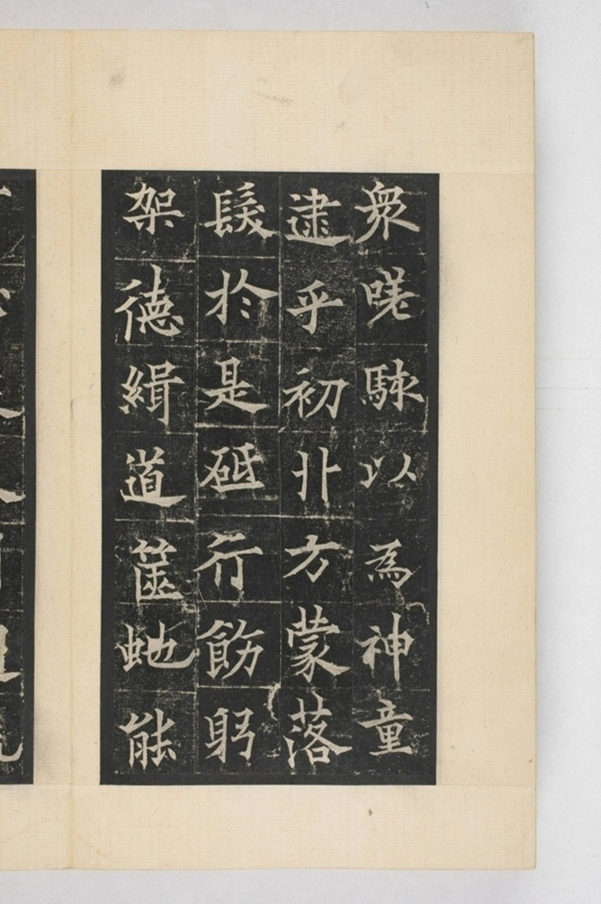 衆嗟駭以為神童
逮乎初丱方蒙落
髮於是砥行飭躬
架德緝道篋虵能